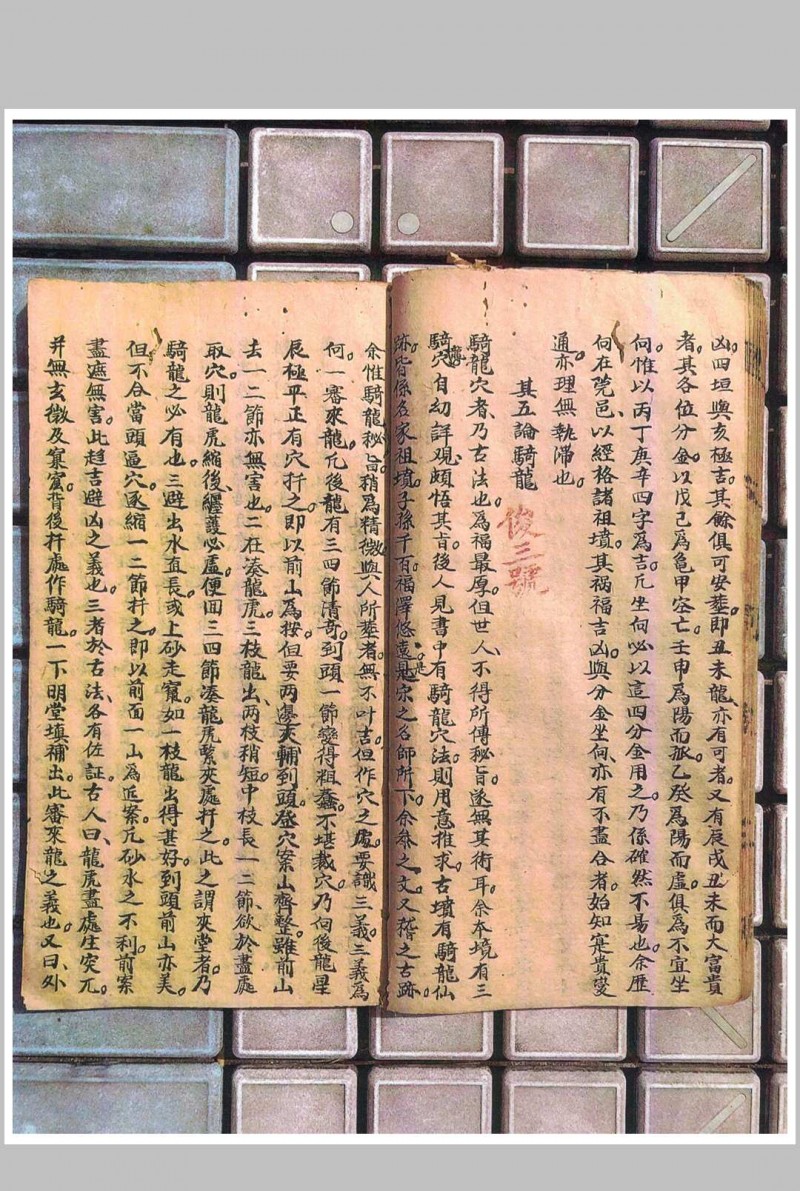 凶四垣與亥極吉其餘俱可安葬即丑未龍亦有可者又有辰戌丑未而大富貴
者其各位分金以戊己為龜甲空亡壬申為陽而孤乙癸為陽而虛俱為不宜坐
向惟以丙丁庚辛四字為吉凢坐向必以這四分金用之乃係確然不易也余歷
向在莞邑以經格諸祖墳其禍福吉凶與分金坐向亦有不盡合者始知寔貴變
通亦理無執滯也
其五論騎龍
俊三號
騎龍穴者乃古法也為福最厚但世人不得所傳秘旨遂無其術耳余本境有三
騎龍穴自幼詳观頗悟其旨後人見書中有騎龍穴法則用意推求古墳有騎龍仙
跡皆係名家祖墳子孫千百福澤悠遠是宋之名師所下余叅之文又稽之古跡
余惟騎龍秘旨稍為精微與人所葬者無不叶吉但作穴之處要識三義三義為
何一審來龍凢後龍有三四節清奇到頭一節變得粗蠢不堪裁穴乃向後龍星
辰極平正有穴扦之即以前山為按但要两邊夾輔到頭登穴案山齊整雖前山
去一二節亦無害也二在湊龍虎三枝龍出两枝稍短中枝長一二節欲於盡處
取穴則龍虎縮後纏護必虛便回三四節湊龍虎緊夾處扦之此之謂夾堂者乃
騎龍之必有也三避出水直長或上砂走竄如一枝龍出得甚好到頭前山亦美
但不合當頭逼穴逐縮一二節扦之即以前面一山為近案凢砂水之不利前案
盡遮無害此趋吉避凶之義也三者於古法各有佐証古人曰龍虎盡處庄突兀
并無玄微及窠窟背後扦處作騎龍一下明堂填補出此審來龍之義也又曰外